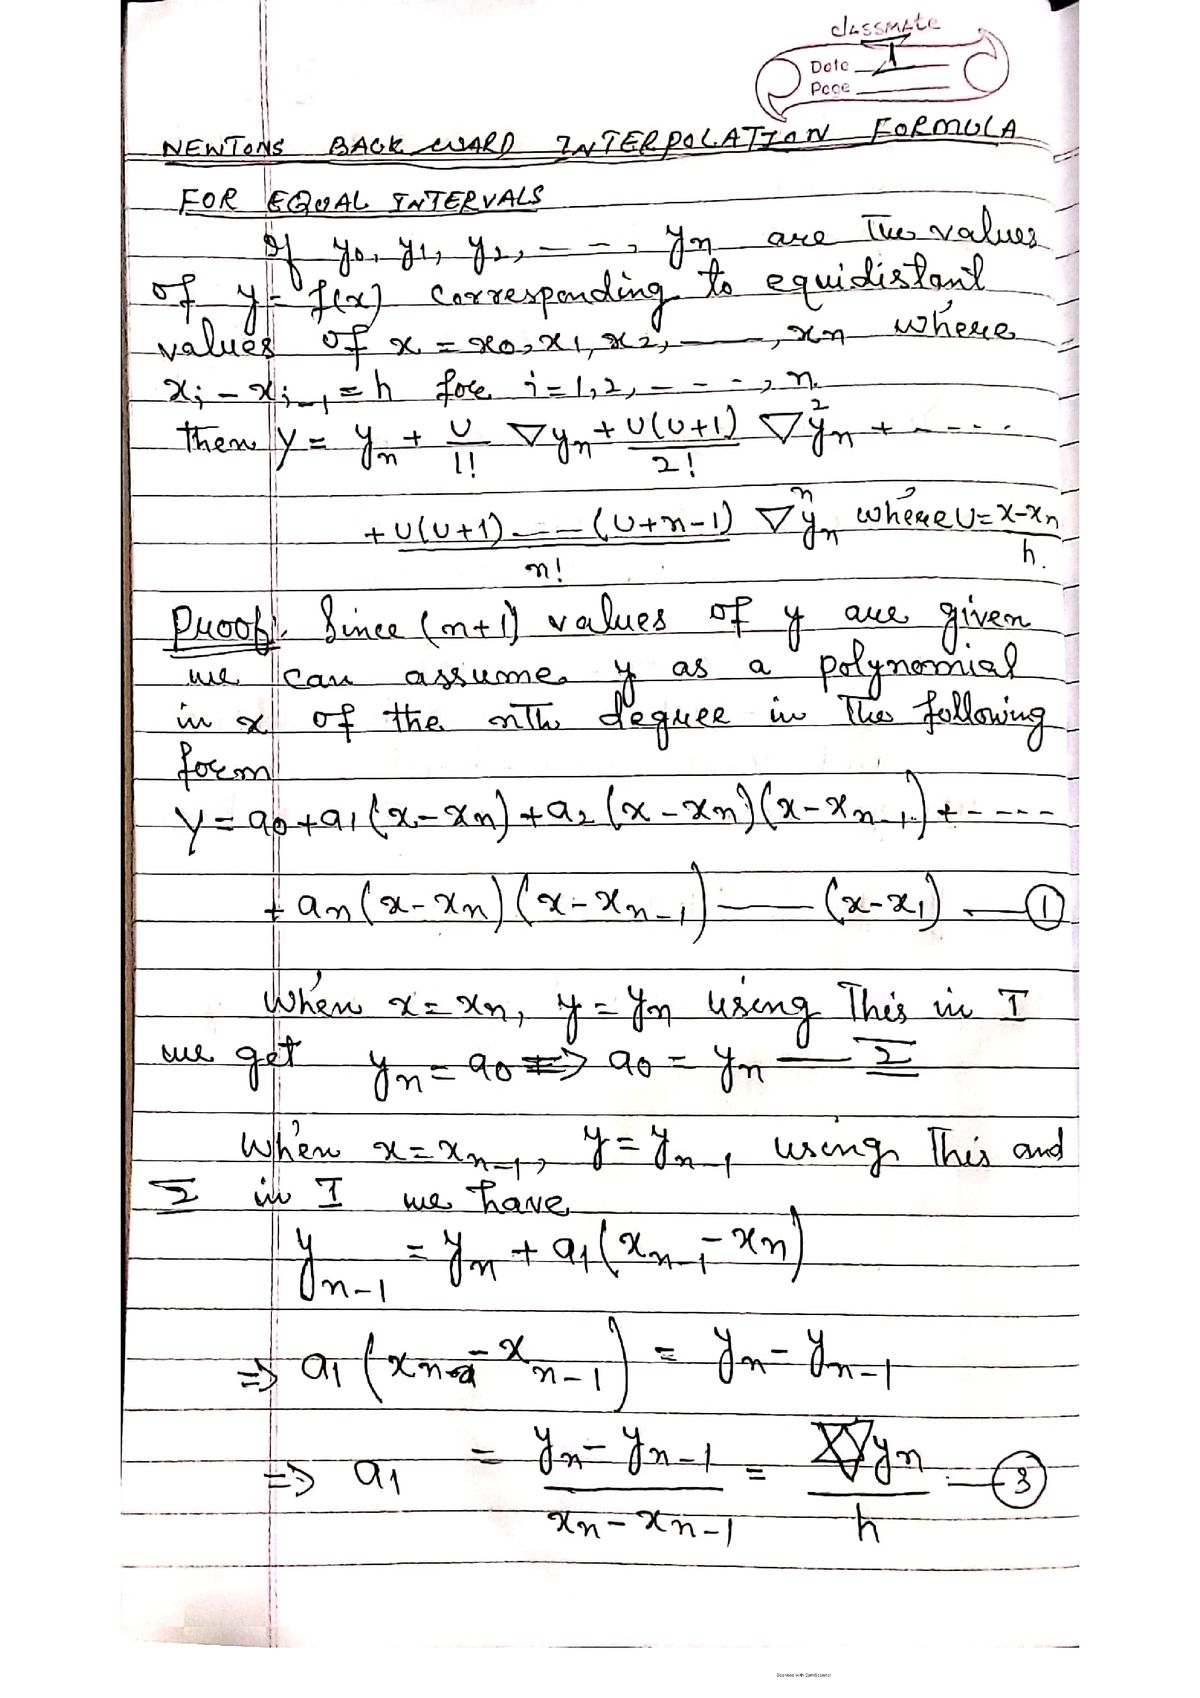 classmate
Date
Page
NEWTONS BACKWARD INTERPOLATION FORMULA
FOR EQUAL INTERVALS
If y₀, y₁, y₂, - - -, yₙ are the values
of y = f(x) corresponding to equidistant
values of x = x₀, x₁, x₂, ——, xₙ where
xᵢ - xᵢ₋₁ = h for i = 1, 2, - - -, n.
then y = yₙ + U/1! ∇yₙ + U(U+1)/2! ∇²yₙ + - - - -
+ U(U+1) - - - (U+n-1)/n! ∇ⁿyₙ where U = x-xₙ/h.
Proof. Since (n+1) values of y are given
we can assume y as a polynomial
in x of the nth degree in the following
form
y = a₀ + a₁(x-xₙ) + a₂(x-xₙ)(x-xₙ₋₁) + - - - -
+ aₙ(x-xₙ)(x-xₙ₋₁) —— (x-x₁) — ①
When x = xₙ, y = yₙ using This in I
we get yₙ = a₀ => a₀ = yₙ — 2
When x = xₙ₋₁, y = yₙ₋₁ using This and
2 in I we have
yₙ₋₁ = yₙ + a₁(xₙ₋₁ - xₙ)
=> a₁(xₙ - xₙ₋₁) = yₙ - yₙ₋₁
=> a₁ = yₙ - yₙ₋₁/xₙ - xₙ₋₁ = ∇yₙ/h — ③
Scanned with CamScanner